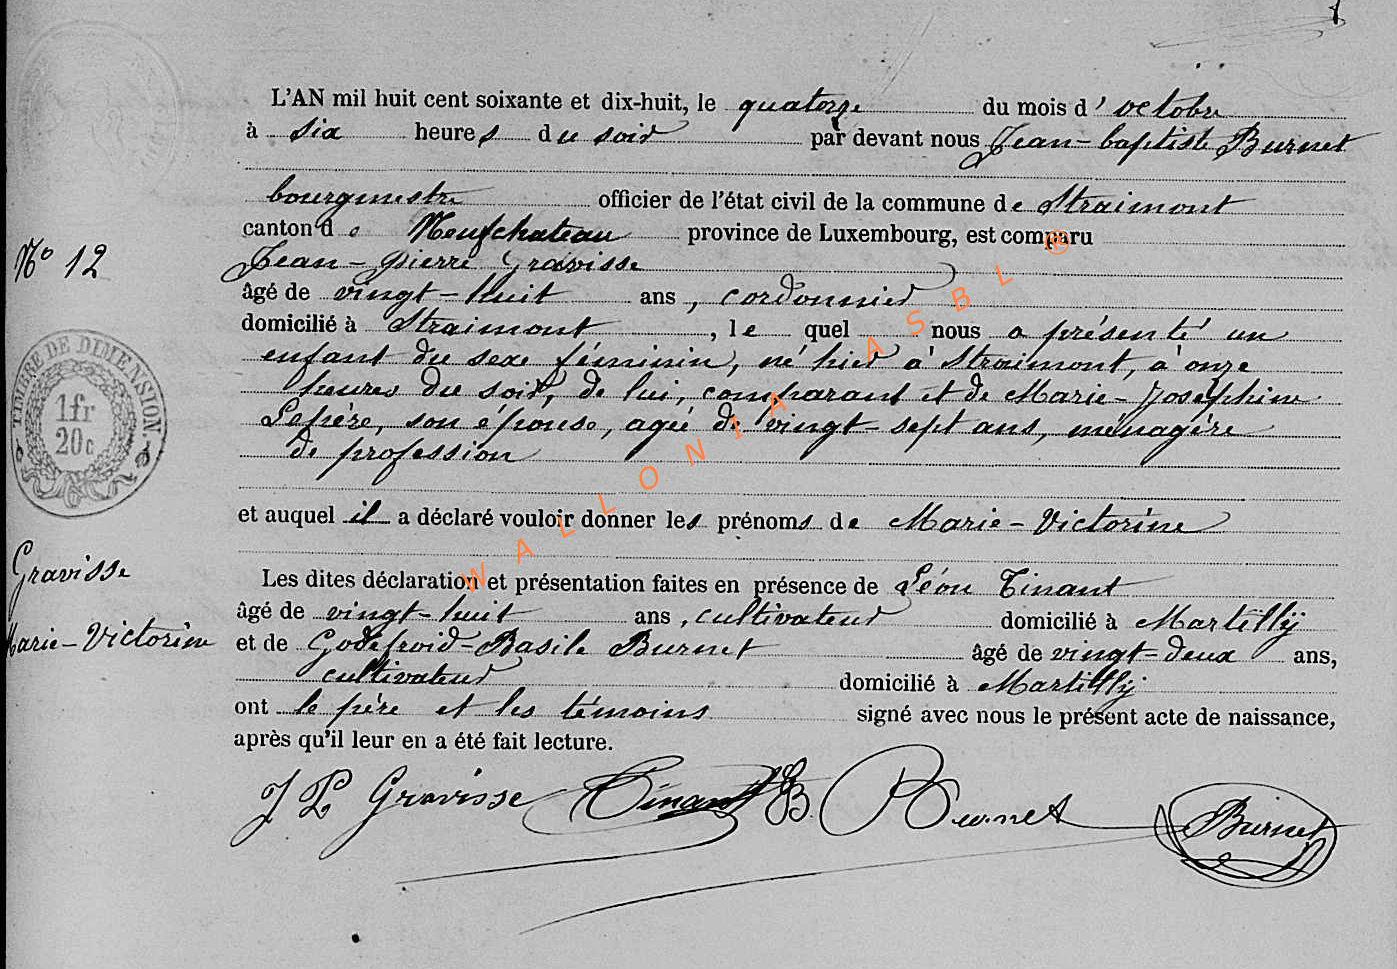 L'AN mil huit cent soixante et dix-huit, le quatorze du mois d'octobre
à six heures du soir par devant nous Jean-baptiste Burnet
bourgmestre officier de l'état civil de la commune de Straimont
canton de Neufchateau province de Luxembourg, est comparu
Jean-Pierre Gravisse
N° 12
âgé de vingt-huit ans, cordonnier
domicilié à Straimont, lequel nous a présenté un
enfant du sexe féminin, né hier à Straimont, à onze
heures du soir, de lui, comparant et de Marie-Joséphine
Lepère, son épouse, agée de vingt-sept ans, ménagère
de profession
TIMBRE DE DIMENSION.
1fr
20c
et auquel il a déclaré vouloir donner les prénoms de Marie-Victorine
Gravisse
Marie-Victorine
Les dites déclaration et présentation faites en présence de Léon Tinant
âgé de vingt-huit ans, cultivateur domicilié à Martilly
et de Godefroid-Basile Burnet âgé de vingt-deux ans,
cultivateur domicilié à Martilly
ont le père et les témoins signé avec nous le présent acte de naissance,
après qu'il leur en a été fait lecture.
J P Gravisse Tinant B. Burnet Burnet
WALLONIA ASBL ®